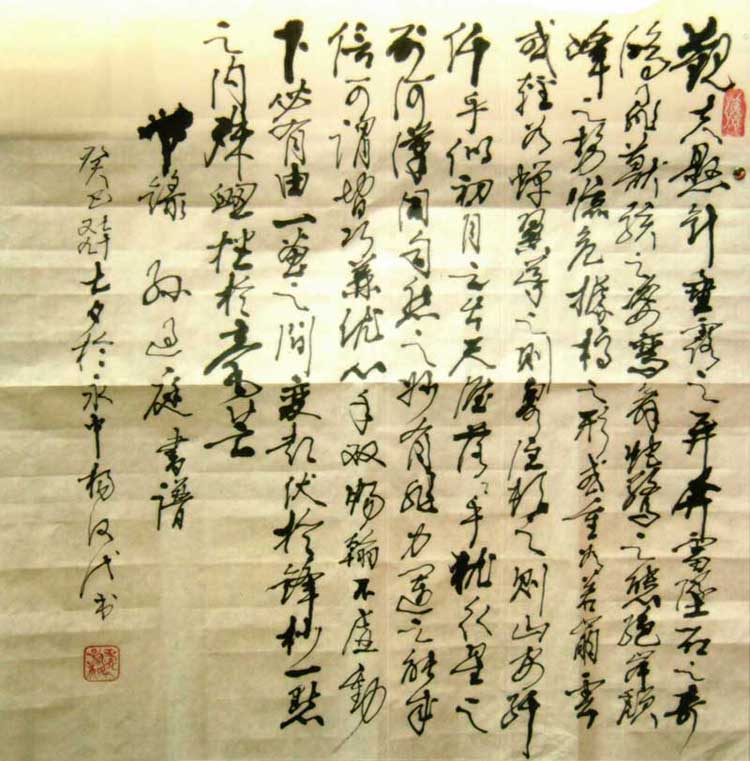 觀夫懸針垂露之异奔雷墜石之奇
鴻飛獸駭之姿鸞舞蛇驚之態絕岸頹
峰之勢臨危據槁之形或重若崩雲
或輕如蟬翼導之則泉注頓之則山安纤
纤乎似初月之出天涯落々乎猶众星之
列河漢同自然之妙有非力運之能成
信可謂智巧兼優心手双暢翰不虛動
下必有由一畫之間變起伏於鋒杪一點
之內殊衄挫於毫芒
節錄 孫過庭書譜
癸巳 七夕於永中楊汉 书